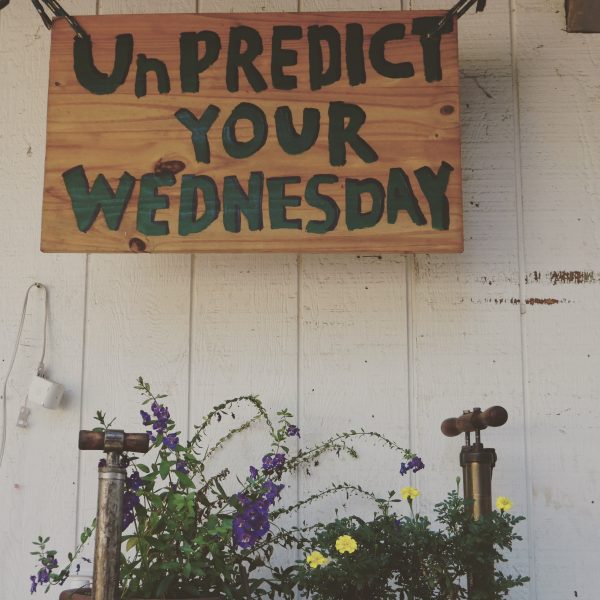 UnPREDICT
YOUR
WEDNESDAY